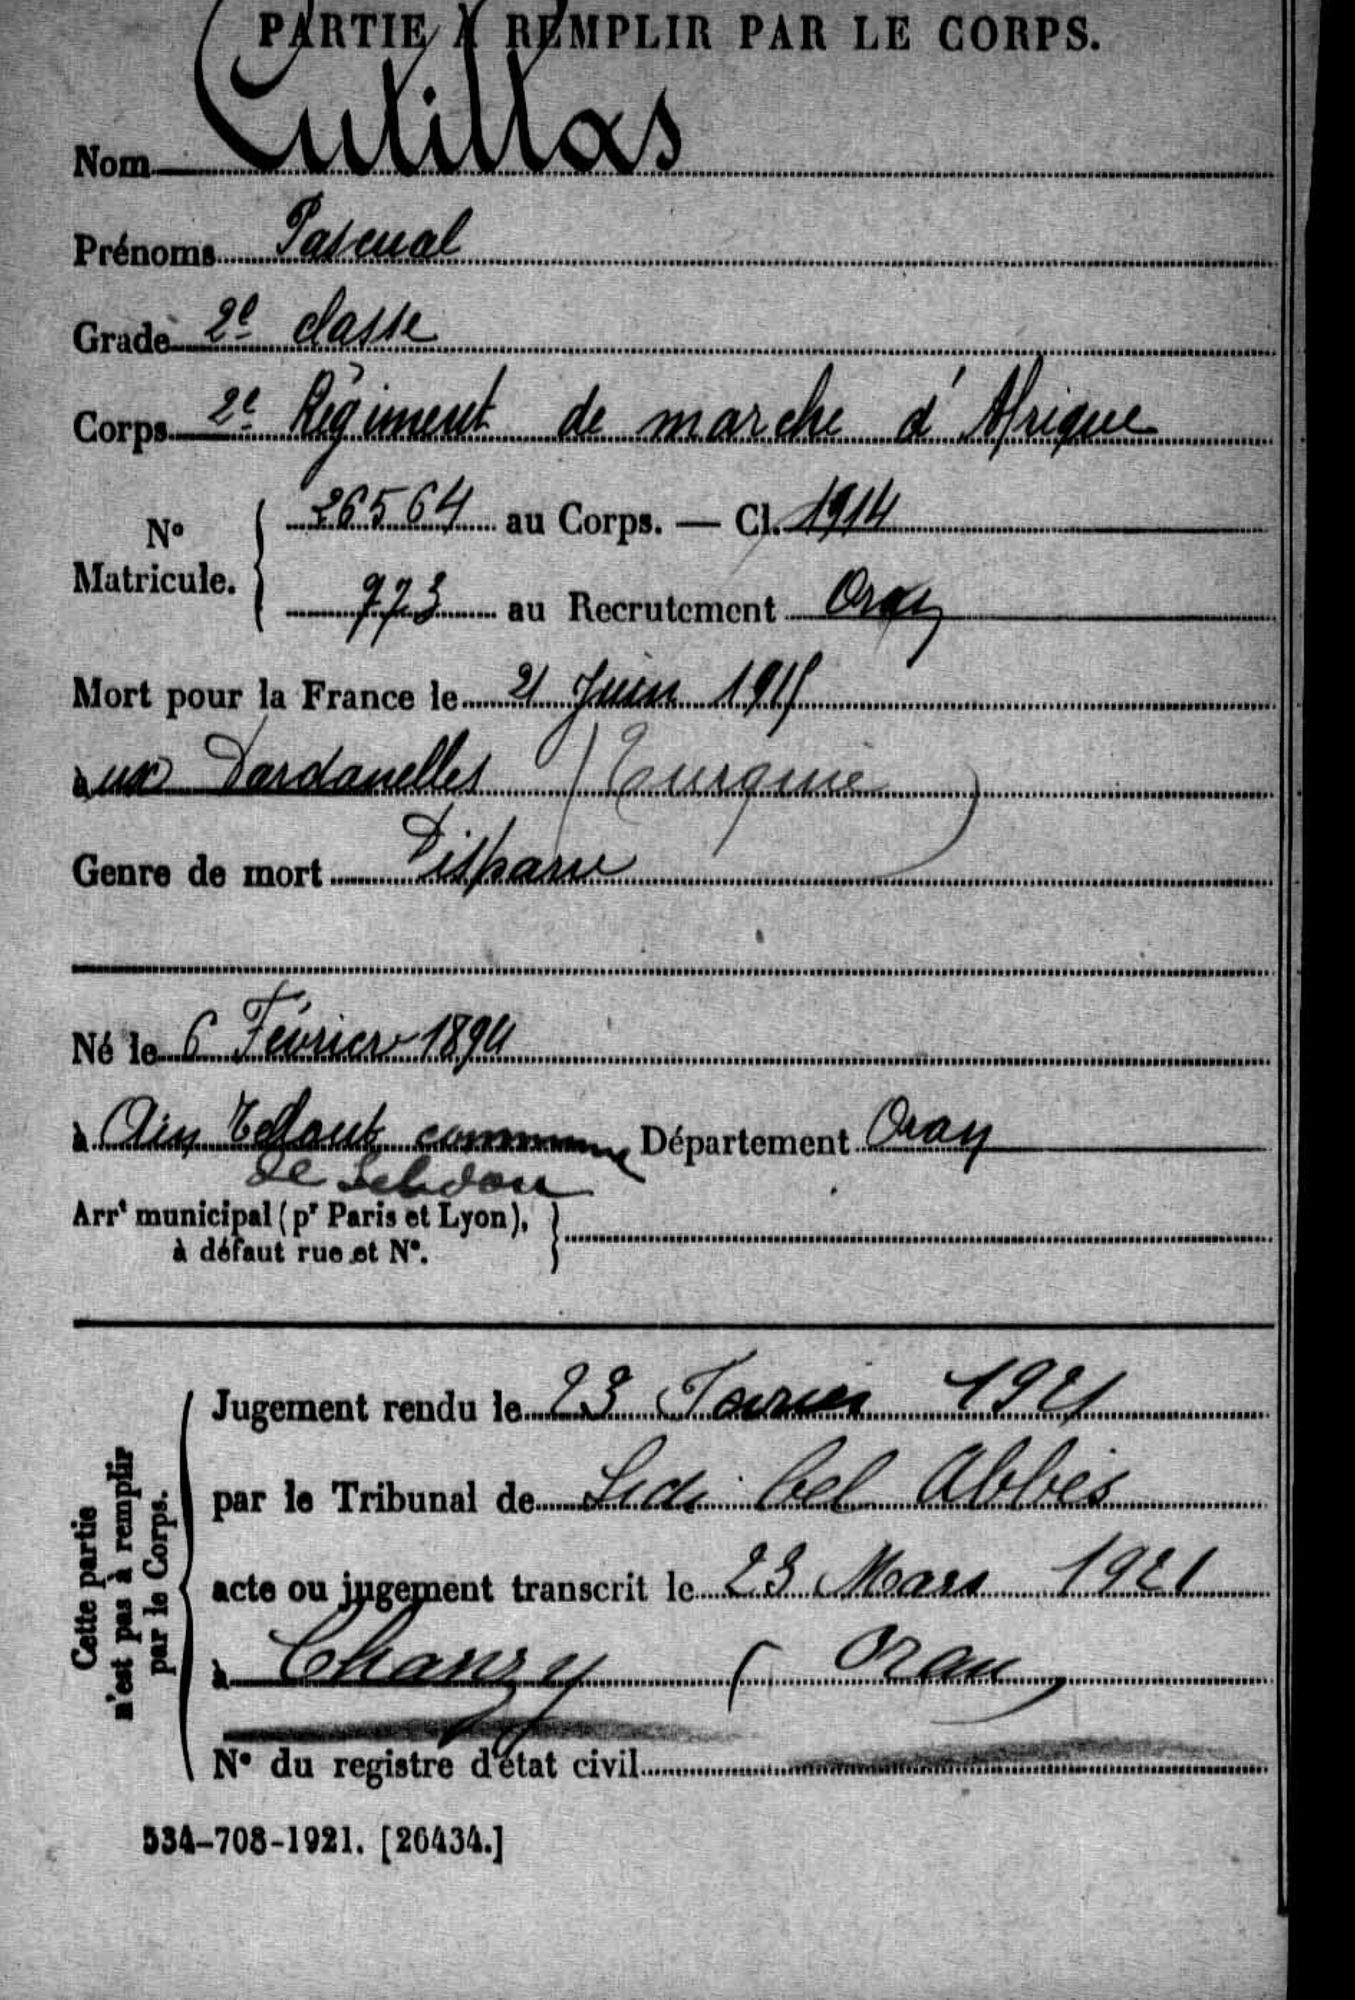 PARTIE À REMPLIR PAR LE CORPS.
Nom Cutillas
Prénoms Pascual
Grade 2e classe
Corps 2e Régiment de marche d'Afrique
N° Matricule. { 26564 au Corps. — Cl. 1914
973 au Recrutement Oran
Mort pour la France le 21 Juin 1915
aux Dardanelles (Turquie)
Genre de mort Disparu
Né le 6 Février 1894
à Ain Tellout commune Département Oran
de Sebdou
Arrt municipal (pr Paris et Lyon), }
à défaut rue et N°.
Cette partie
n'est pas à remplir
par le Corps.
Jugement rendu le 23 Février 1921
par le Tribunal de Sidi bel Abbès
acte ou jugement transcrit le 23 Mars 1921
à Chanzy (Oran
N° du registre d'état civil
534-708-1921. [26434.]